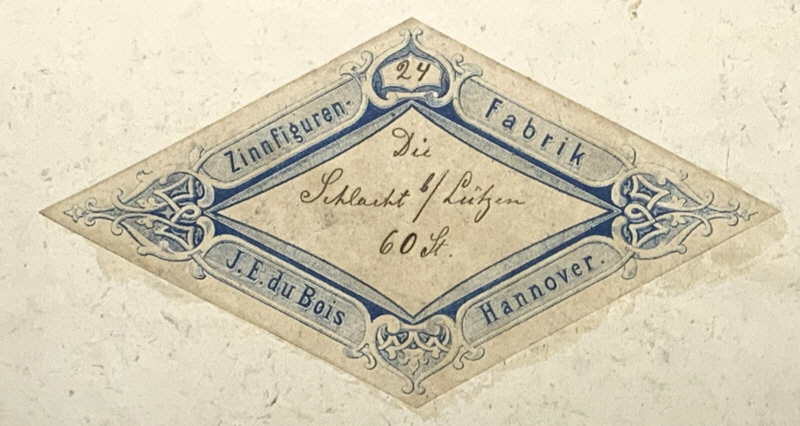 24
Zinnfiguren-
Fabrik
Die
Schlacht b/ Lützen
60 St.
J. E. du Bois
Hannover.